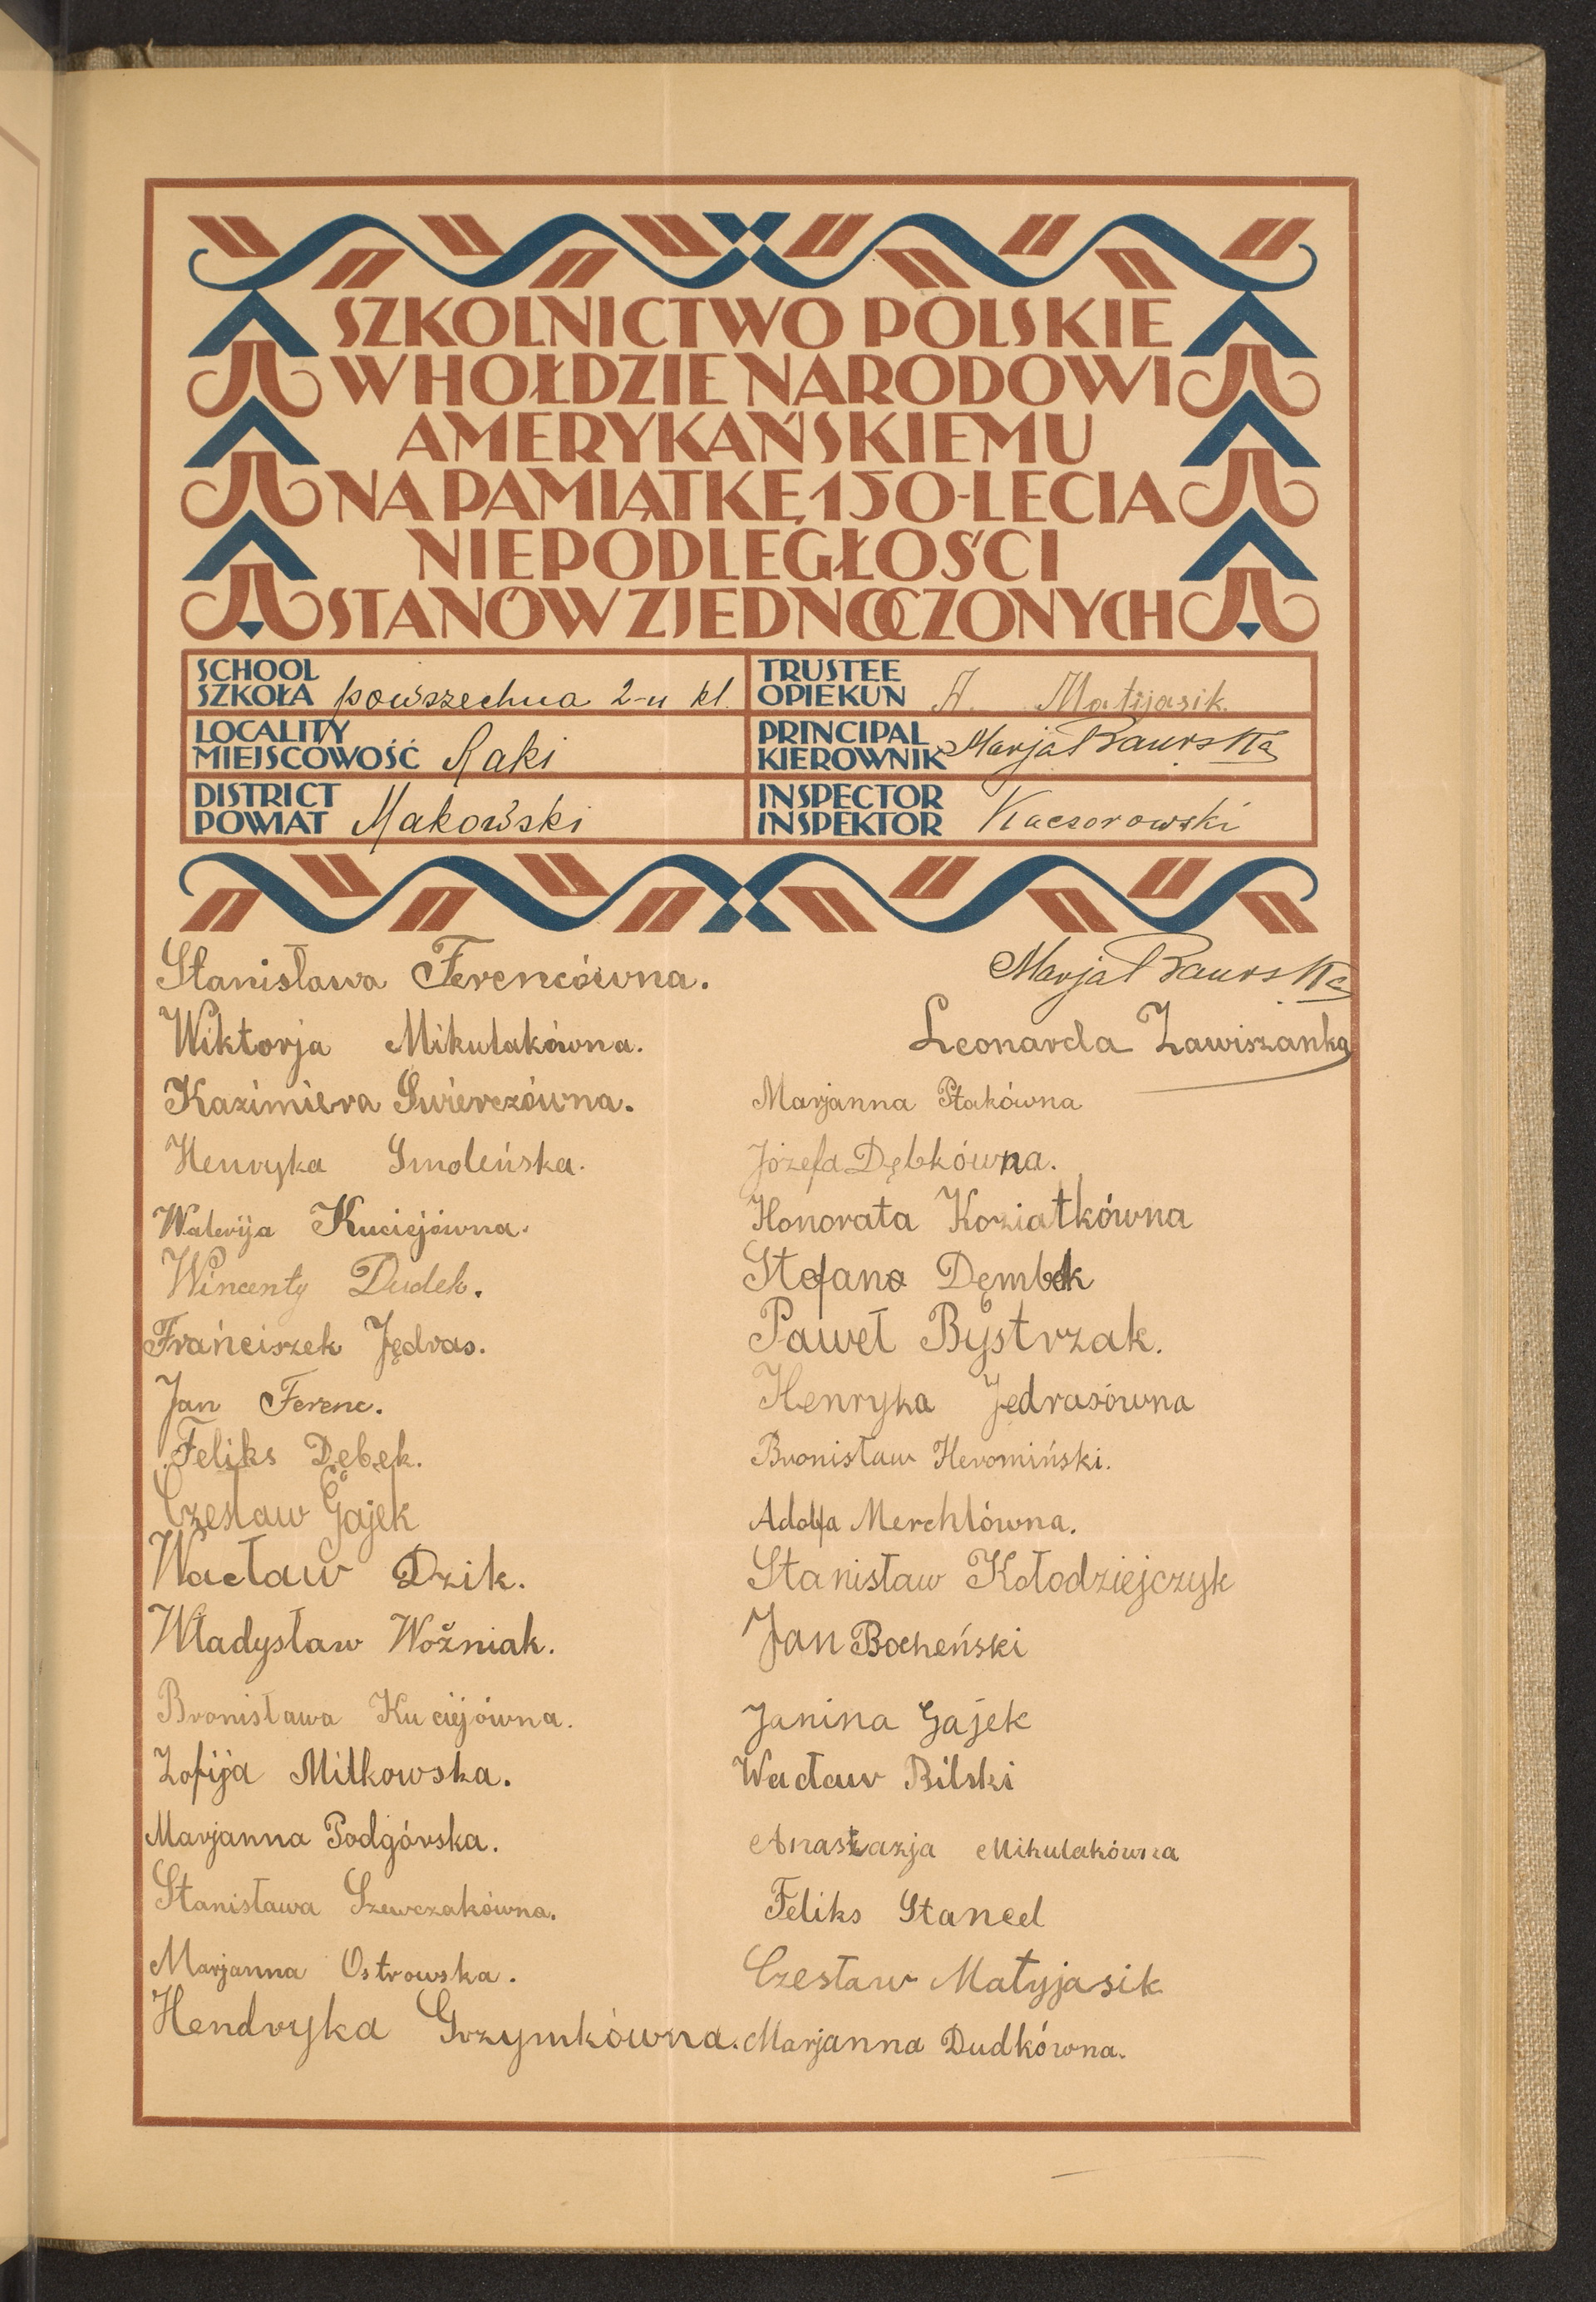 SZKOLNICTWO POLSKIE
W HOŁDZIE NARODOWI
AMERYKAŃSKIEMU
NA PAMIĄTKĘ 150-LECIA
NIEPODLEGŁOŚCI
STANÓW ZJEDNOCZONYCH
SCHOOL
SZKOŁA powszechna 2-u kl.
TRUSTEE
OPIEKUN A. Matijasik.
LOCALITY
MIEJSCOWOŚĆ Raki
PRINCIPAL
KIEROWNIK Marja
DISTRICT
POWIAT Makowski
INSPECTOR
INSPEKTOR Kaczorowski
Stanisława Ferencówna.
Wiktorja Mikulakówna.
Kazimiera Świerczówna.
Henryka Smoleńska.
Walerija Kuciejówna.
Wincenty Dudek.
Frańciszek Jędras.
Jan Ferenc.
Feliks Dębek.
Czesław Gajek
Wacław Dzik.
Władysław Woźniak.
Bronisława Kuciejówna.
Zofija Miłkowska.
Marjanna Podgórska.
Stanisława Szewczakówna.
Marjanna Ostrowska.
Hendryka Grzymkówna.
Marja
Leonarda Zawiszanka
Marjanna Ptakówna
Józefa Dębkówna.
Honorata Koziatkówna
Stefana Dęmbek
Paweł Bystrzak.
Henryka Jędrasówna
Bronisław Heromiński.
Adolfa Merchlówna.
Stanisław Kołodziejczyk
Jan Bocheński
Janina Gajek
Wacław Bilski
Anastazja Mikulakówna
Feliks Stancel
Czesław Matyjasik
Marjanna Dudkówna.